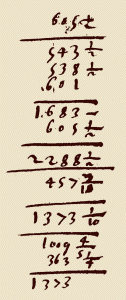 605 1/2
543 1/2
538 1/2
601
1.683 ~
605 1/2
2288 1/2
457 7/10
1373 1/10
1009 4/5
363 1/4
1373